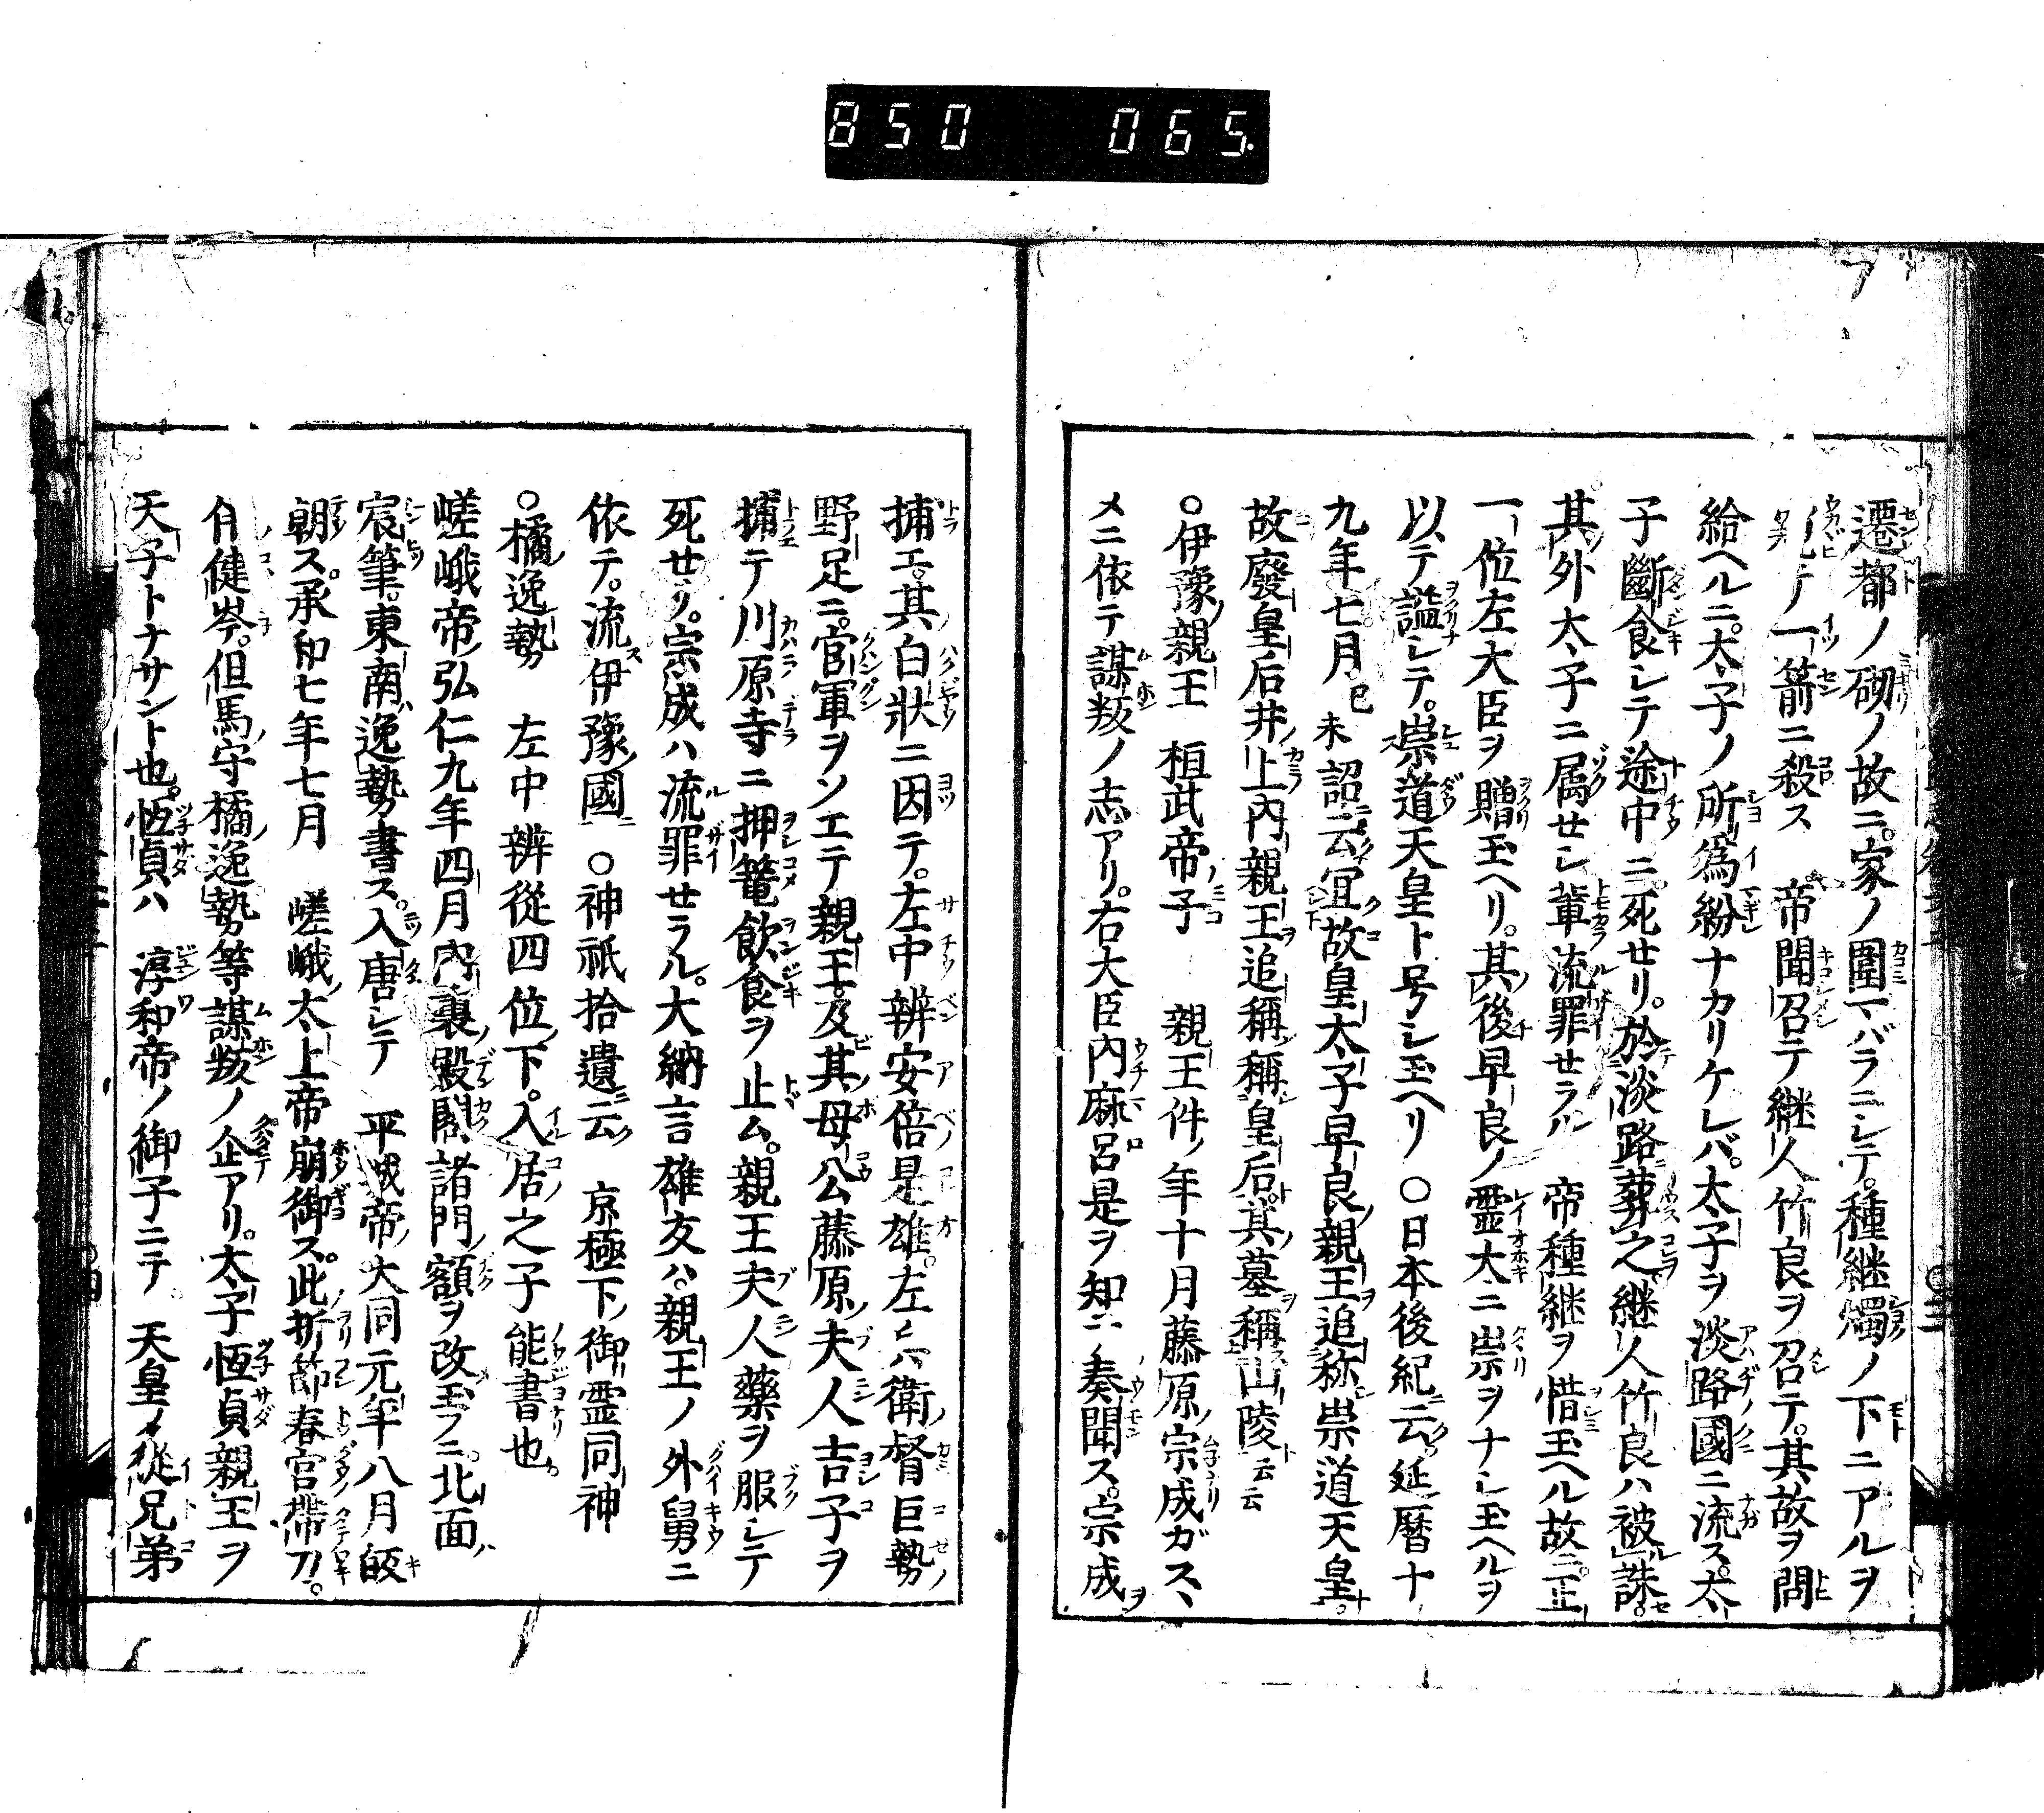 850 065
遷都ノ砌ノ故ニ。家ノ圍マバラニシテ。種継燭ノ下ニアルヲ
テ一箭ニ殺ス 帝聞召テ継人竹良ヲ召テ。其故ヲ問
給ヘルニ。太子ノ所為紛ナカリケレバ。太子ヲ淡路國ニ流ス。太
子斷食シテ途中ニ死セリ。於淡路葬之継人竹良ハ被誅。
其外太子ニ属セシ輩流罪セラル 帝種継ヲ惜玉ヘル故ニ正
一位左大臣ヲ贈玉ヘリ。其後早良ノ霊大ニ祟ヲナシ玉ヘルヲ
以テ謚シテ。崇道天皇ト号シ玉ヘリ ○日本後紀云延暦十
九年七月己未詔云冝故皇太子早良親王追称崇道天皇。
故廢皇后井上内親王追稱稱皇后其墓稱山陵云云
○伊豫親王 桓武帝子 親王件ノ年十月藤原宗成ガスヽ
メニ依テ謀叛ノ志アリ。右大臣内麻呂是ヲ知テ奏聞ス。宗成
捕エ。其白狀ニ因テ。左中辨安倍是雄。左兵衛督巨勢
野足ニ。官軍ヲソエテ親王及其母公藤原夫人吉子ヲ
捕テ川原寺ニ押篭飲食ヲ止ム。親王夫人藥ヲ服シテ
死セリ。宗成ハ流罪セラル。大納言雄友ハ。親王ノ外舅ニ
依テ。流伊豫國 ○神祇拾遺云 京極下御霊同神
○橘逸勢 左中辨從四位下。入居之子能書也。
嵯峨帝弘仁九年四月内裏殿閣諸門額ヲ改玉フニ。北面ハ
宸筆。東南逸勢書ス。入唐シテ 平城帝大同元年八月皈
朝ス。承和七年七月 嵯峨太上帝崩御ス。此折節春宮帶刀。
伴健岑。但馬守橘逸勢等謀叛ノ企アリ。太子恒貞親王ヲ
天子トナサント也。恒貞ハ 淳和帝ノ御子ニテ 天皇ノ從兄弟